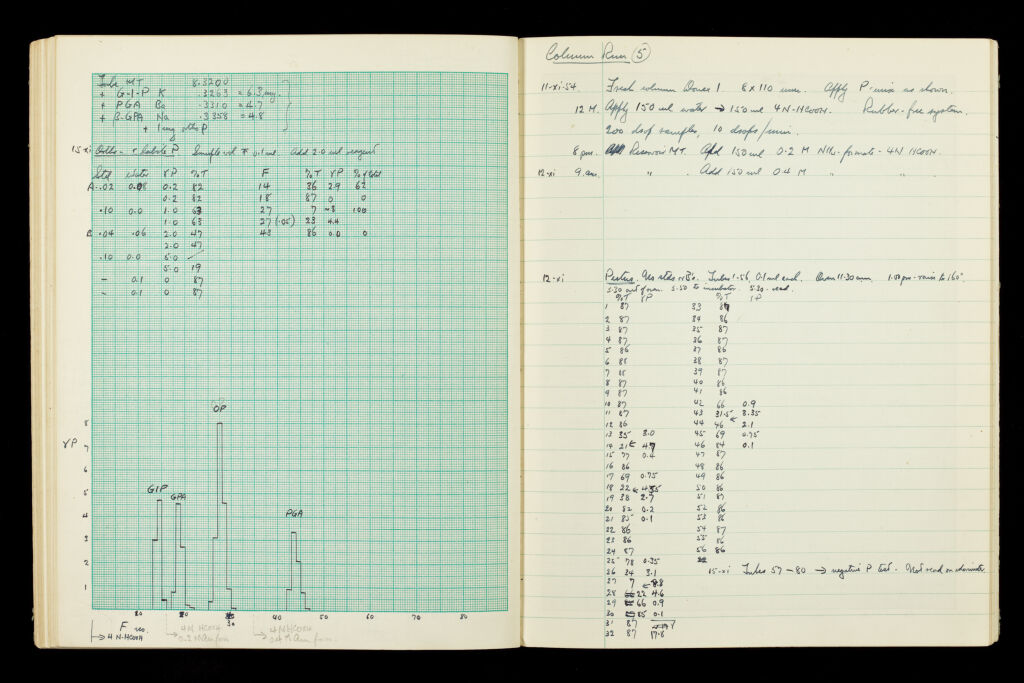 Tube MT 8.3200
+ G-1-P K .3263 = 6.3 mg.
+ PGA Ba .3310 = 4.7
+ β-GPA Na .3358 = 4.8
+ 1 mg ortho P
15 xi Ortho- + labile P. Sample vol = 0.1 ml. Add 2.0 ml reagent
Std Water γP %T F %T γP % of total
A .02 0.08 0.2 82 14 36 2.9 62
0.2 82 18 87 0 0
.10 0.0 1.0 63 27 7 ~8 100
1.0 63 27 (.05) 23 4.4
B .04 .06 2.0 47 43 86 0.0 0
2.0 47
.10 0.0 5.0
5.0 19
- 0.1 0 87
- 0.1 0 87
OP
8
γP 7
6
5 G1P GPA
4 PGA
3
2
1
30 40 50 60 70 80
F no.
→ 4 N-HCOOH
4N HCOOH
0.2 M Am form
4 N HCOOH
0.4 M Am form.
Column Run 5
11-xi-54 Fresh column Dowex 1 8 x 110 mm. Apply P-mix as shown.
12 M. Apply 150 ml water → 150 ml 4 N-HCOOH. Rubber-free system.
200 drop samples, 10 drops/min.
8 pm. Reservoir MT. Add 150 ml 0.2 M NH4-formate - 4N HCOOH.
12-xi 9. am. " . Add 150 ml 0.4 M " "
12-xi No stds or B's. Tubes 1-56, 0.1 ml each. Oven 11-30 am. 1.00 pm - raise to 160°
3.30 out of oven. 3.50 to incubator. 5.30 - read.
%T γP %T γP
1 87 33 87
2 87 34 86
3 87 35 87
4 87 36 87
5 86 37 86
6 88 38 87
7 88 39 87
8 87 40 86
9 87 41 86
10 87 42 66 0.9
11 87 43 31.5 3.35
12 86 44 46 2.1
13 35 3.0 45 69 0.75
14 21 4.7 46 84 0.1
15 77 0.4 47 87
16 86 48 86
17 69 0.75 49 86
18 22 4.55 50 86
19 38 2.7 51 87
20 82 0.2 52 86
21 85 0.1 53 86
22 86 54 87
23 86 55 86
24 87 56 86
25 78 0.35
15-xi Tubes 57-80 → negative P test. Not read on
26 34 3.1
27 7 8.8
28 22 4.6
29 66 0.9
30 85 0.1
31 87
32 87 17.8